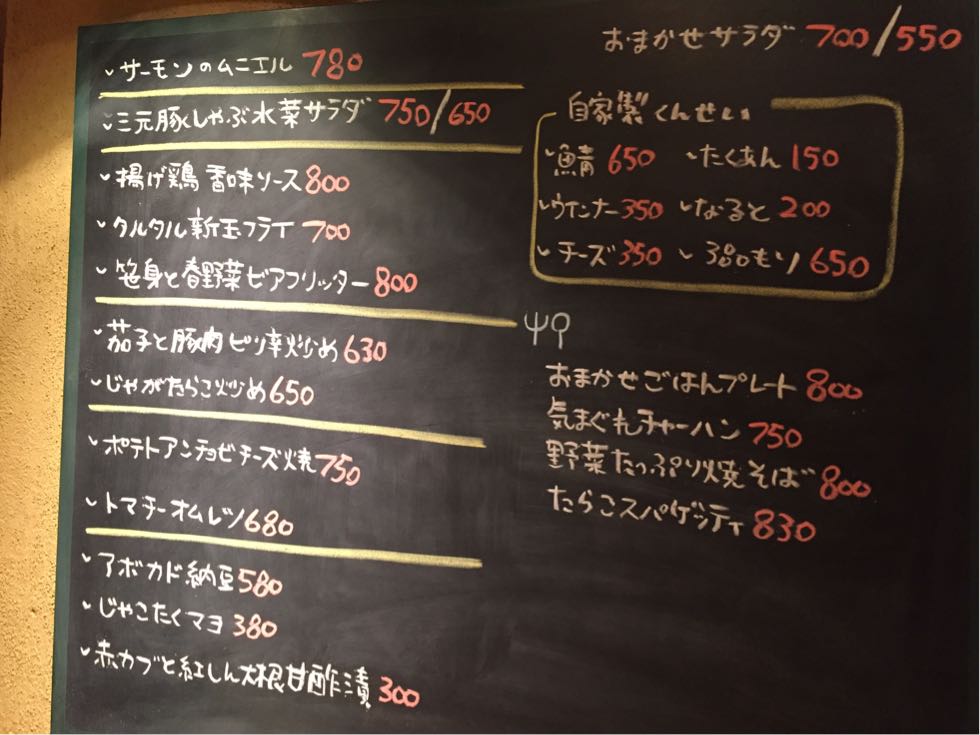 サーモンのムニエル 780
三元豚しゃぶ水菜サラダ 750/650
揚げ鶏 香味ソース 800
タルタル新玉フライ 700
笹身と春野菜ビアフリッター 800
茄子と豚肉ピリ辛炒め 630
じゃがたらこ炒め 650
ポテトアンチョビチーズ焼 750
トマチーオムレツ 680
アボカド納豆 580
じゃこたくマヨ 380
赤カブと紅しん大根甘酢漬 300
おまかせサラダ 700/550
自家製くんせい
鯖 650 たくあん 150
ウインナー 350 なると 200
チーズ 350 3品もり 650
おまかせごはんプレート 800
気まぐれチャーハン 750
野菜たっぷり焼そば 800
たらこスパゲッティ 830